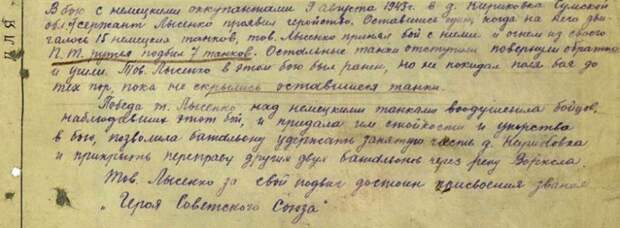 В бою с немецкими оккупантами 9 августа 1943г. в д. Кириковка Сумской
обл. сержант Лысенко проявил геройство. Оставшись один, когда на него дви-
галось 15 немецких танков, тов. Лысенко принял бой с ними и огнем из своего
П.Т. ружья подбил 7 танков. Остальные танки отступили повернули обратно
и ушли. Тов. Лысенко в этом бою был ранен, но не покидал поля боя до
тех пор, пока не скрылись оставшиеся танки.
Победа т. Лысенко над немецкими танками воодушевила бойцов,
наблюдавших этот бой, и придала им стойкости и упорства
в бою, позволила батальону удержать занятую часть д. Кириковка
и прикрыть переправу других двух батальонов через реку Ворскла.
Тов. Лысенко за свой подвиг достоин присвоения звания
„Героя Советского Союза"